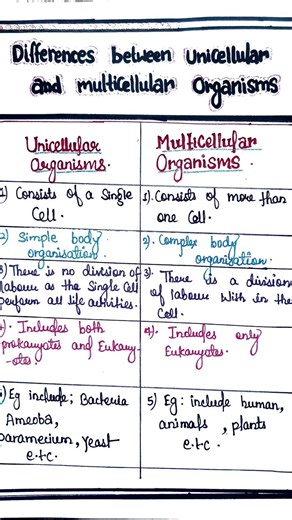 Differences between Unicellular
and multicellular Organisms
Unicellular
Organisms.
1) Consists of a Single
Cell.
2) Simple body
organisation.
3) There is no division of
labour as the Single Cell
perform all life activities.
4). Includes both
prokaryotes and Eukary-
-otes.
5) Eg include; Bacteria
Amoeba,
paramecium, yeast
e.t.c
Multicellular
Organisms.
1). Consists of more than
one Cell.
2). Complex body
organisation.
3). There is a division
of labour With in the
Cell.
4). Includes only
Eukaryotes.
5) Eg: include human,
animals, plants
e.t.c.